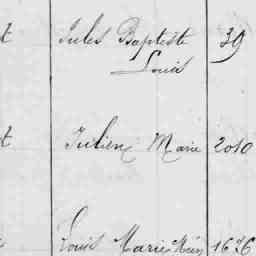 t Jules Baptiste 39
Louis
t Julien Marie 2010
Louis Marie